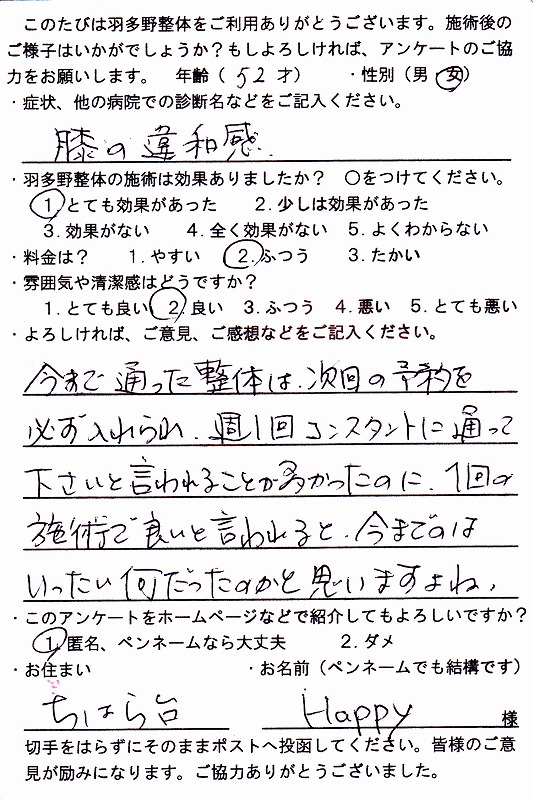 このたびは羽多野整体をご利用ありがとうございます。施術後の
ご様子はいかがでしょうか？もしよろしければ、アンケートのご協
力をお願いします。　年齢（ 52才）　　・性別（男 女）
・症状、他の病院での診断名などをご記入ください。
膝の違和感.
・羽多野整体の施術は効果ありましたか？　〇をつけてください。
1 とても効果があった　　2. 少しは効果があった
3. 効果がない　　4. 全く効果がない　5. よくわからない
・料金は？　1. やすい　2. ふつう　　3. たかい
・雰囲気や清潔感はどうですか？
1. とても良い 2 良い　3. ふつう　4. 悪い　5. とても悪い
・よろしければ、ご意見、ご感想などをご記入ください。
今まで通った整体は、次回の予約を
必ず入れられ、週1回コンスタントに通って
下さいと言われることが多かったのに、1回の
施術で良いと言われると、今までのは
いったい何だったのかと思いますよね、
・このアンケートをホームページなどで紹介してもよろしいですか？
1. 匿名、ペンネームなら大丈夫　　　2. ダメ
・お住まい　　　　　　・お名前（ペンネームでも結構です）
ちはら台　　　Happy　様
切手をはらずにそのままポストへ投函してください。皆様のご意
見が励みになります。ご協力ありがとうございました。